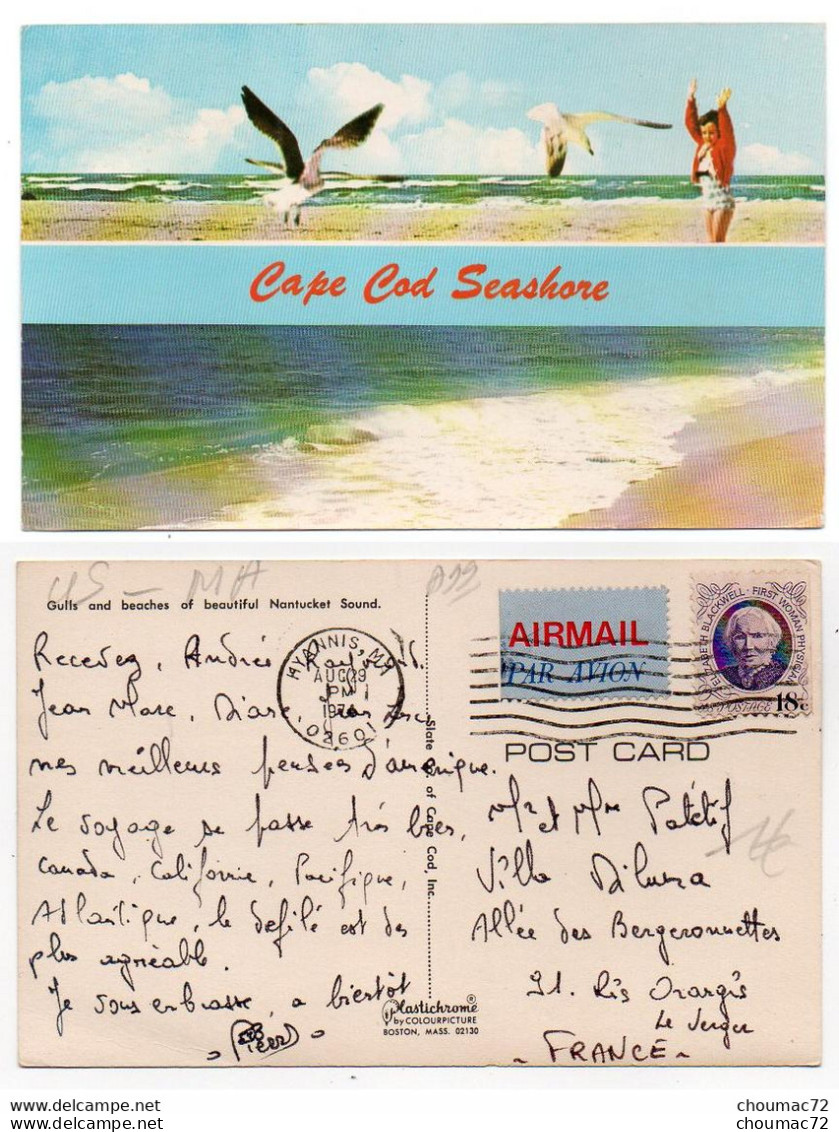 Cape Cod Seashore
US - MA
Gulls and beaches of beautiful Nantucket Sound.
HYANNIS, MA
AUG 29
PM
02601
AIRMAIL
PAR AVION
ELIZABETH BLACKWELL · FIRST WOMAN PHYSICIAN
US POSTAGE 18c
POST CARD
Recevez, André, Raymond.
Jean Marc,
mes meilleures pensées d'amérique.
Le voyage se passe très bien,
Canada, Californie, Pacifique,
Atlantique, le défilé est des
plus agréable.
Je vous embrasse, a bientôt
Pierre
Slate Co. of Cape Cod, Inc.
Plastichrome®
by COLOURPICTURE
BOSTON, MASS. 02130
Mr et Mme
Villa
Allée des Bergeronnettes
91. Ris Orangis
Le Verger
- FRANCE -
Photos et Images de choumac72
Photos et Images de choumac72
choumac72
choumac72